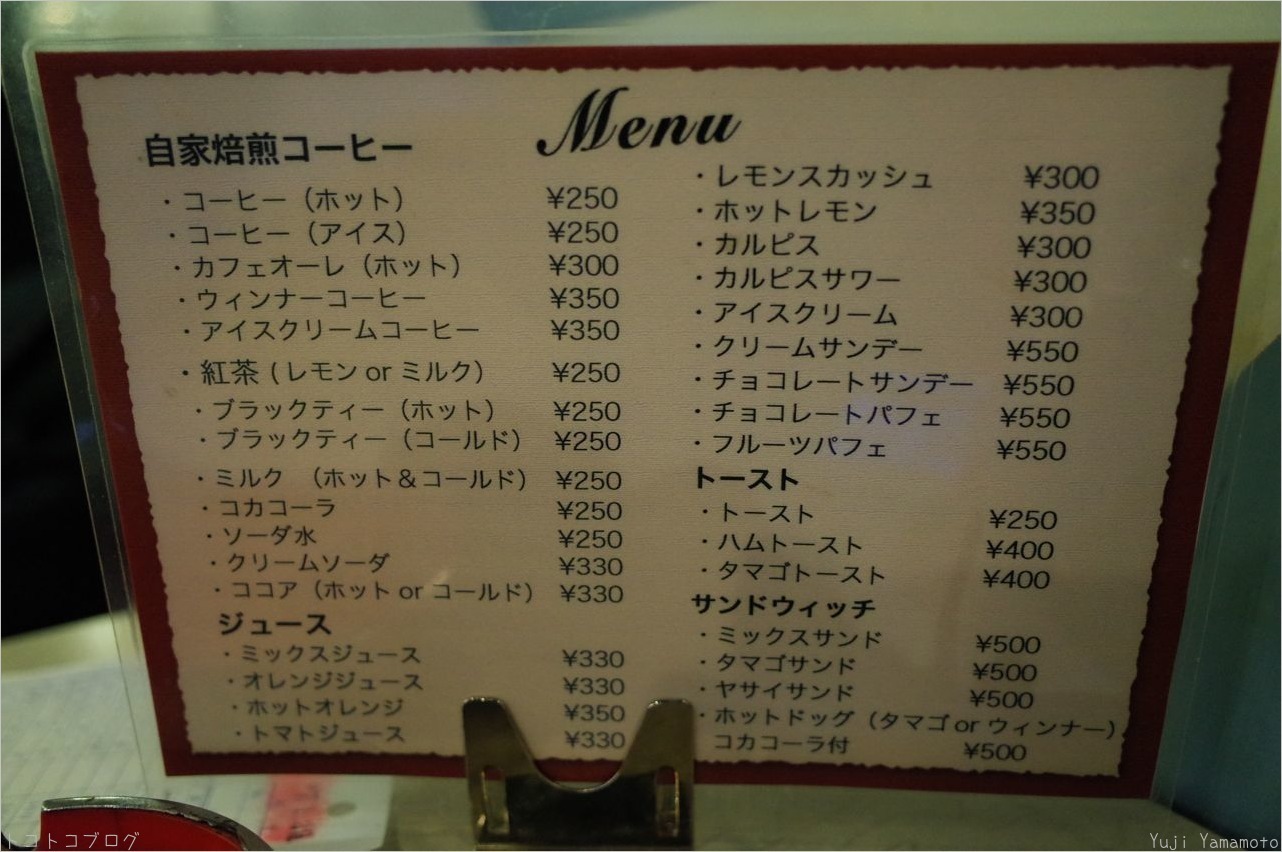 Menu
自家焙煎コーヒー
・コーヒー（ホット） ¥250
・コーヒー（アイス） ¥250
・カフェオーレ（ホット） ¥300
・ウィンナーコーヒー ¥350
・アイスクリームコーヒー ¥350
・紅茶 (レモン or ミルク） ¥250
・ブラックティー（ホット） ¥250
・ブラックティー（コールド） ¥250
・ミルク （ホット＆コールド） ¥250
・コカコーラ ¥250
・ソーダ水 ¥250
・クリームソーダ ¥330
・ココア（ホット or コールド） ¥330
ジュース
・ミックスジュース ¥330
・オレンジジュース ¥330
・ホットオレンジ ¥350
・トマトジュース ¥330
・レモンスカッシュ ¥300
・ホットレモン ¥350
・カルピス ¥300
・カルピスサワー ¥300
・アイスクリーム ¥300
・クリームサンデー ¥550
・チョコレートサンデー ¥550
・チョコレートパフェ ¥550
・フルーツパフェ ¥550
トースト
・トースト ¥250
・ハムトースト ¥400
・タマゴトースト ¥400
サンドウィッチ
・ミックスサンド ¥500
・タマゴサンド ¥500
・ヤサイサンド ¥500
・ホットドッグ（タマゴ or ウィンナー）
コカコーラ付 ¥500
トコトコブログ
Yuji Yamamoto